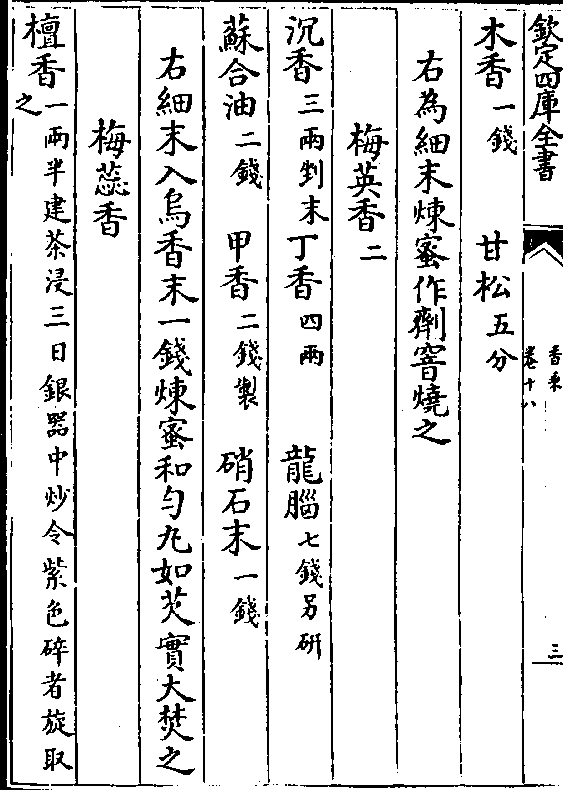 欽定四庫全書
香乘
卷十八
三
木香一錢 甘松五分
右為細末煉蜜作劑窨燒之
梅英香二
沉香三兩剉末 丁香四兩 龍腦七錢另研
蘇合油二錢 甲香二錢製 硝石末一錢
右細末入烏香末一錢煉蜜和勻丸如芡實大焚之
梅蕊香
檀香一兩半建茶浸三日銀器中炒令紫色碎者旋取之